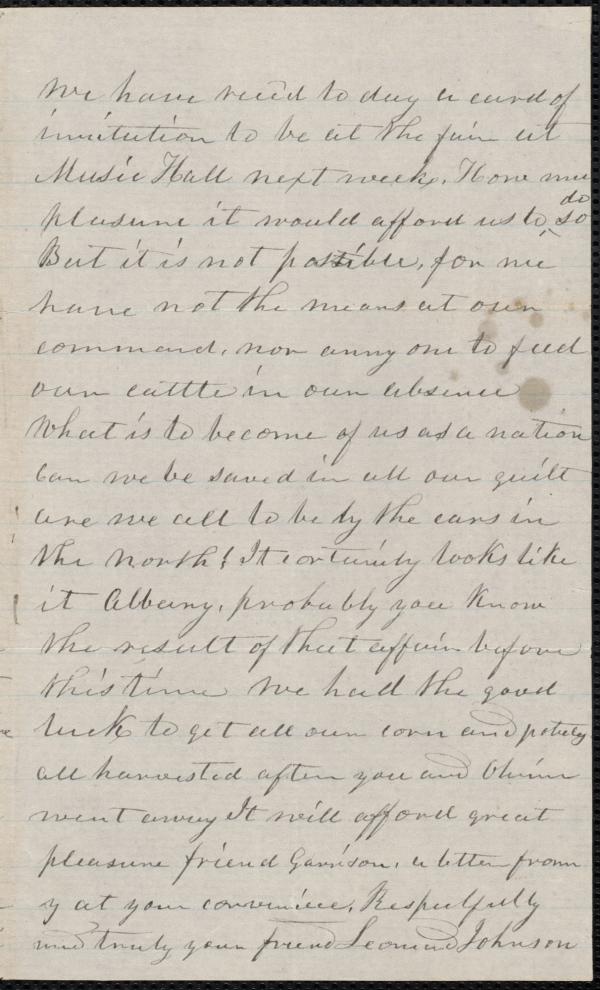 We have recid to day a card of
invitation to be at the fair at
Music Hall next week. How mu
pleasure it would afford us to do so
But it is not possible, for we
have not the means at our
command, nor anny one to feed
our cattle in our absence
What is to become of us as a nation
Can we be saved in all our guilt
are we all to be by the ears in
the North! It certainly looks like
it Albany, probably you know
the result of that affair before
this time We had the good
luck to get all our corn and
all harvested after you and
went away It will afford great
pleasure friend Garrison, a letter from
y at your convenience, Respectfully
and truly your friend Leonard Johnson